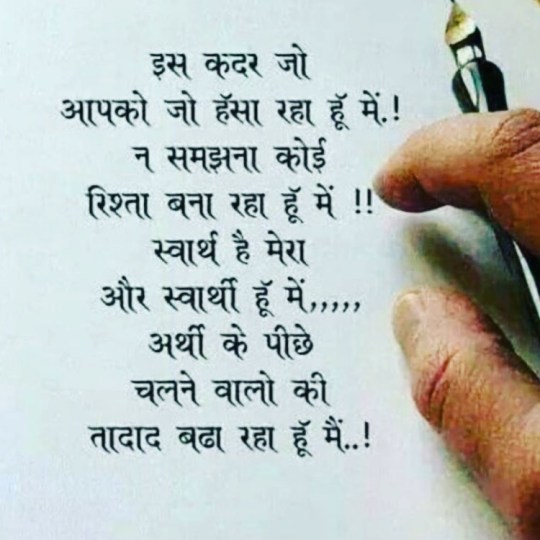 इस कदर जो
आपको जो हॅसा रहा हूॅ में.!
न समझना कोई
रिश्ता बना रहा हूॅ में !!
स्वार्थ है मेरा
और स्वार्थी हूॅ में,,,,,
अर्थी के पीछे
चलने वालो की
तादाद बढा रहा हूॅ मैं..!